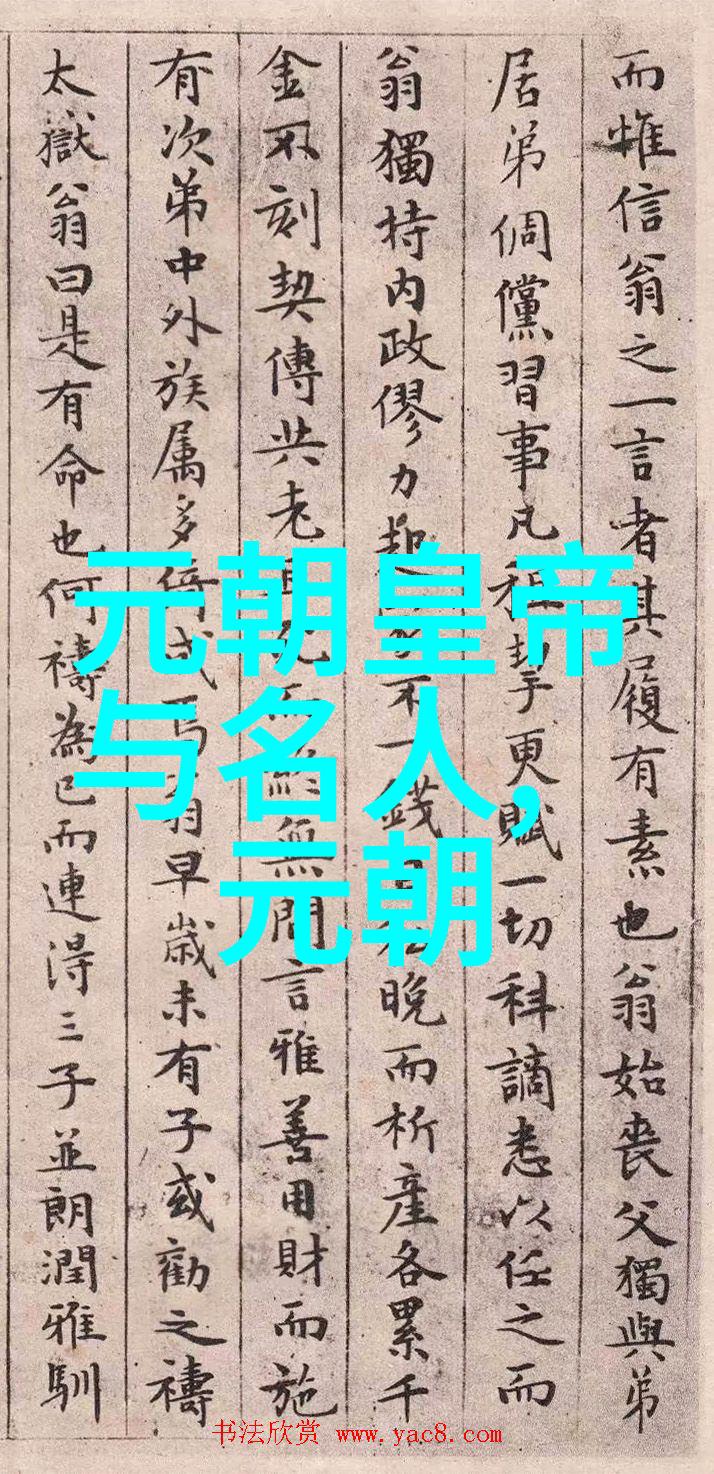 而惟信翁之一言者其履有素也翁始丧父獨與弟
居弟倜儻習事凡租挈更賦一切科謫悉以任之而
翁獨持内政僇力起不一錢晚而析產各累千
金不刻契傳共老無間言雅善用財而施
有次第中外族属多倚成翁早歳未有子或勸之禱
太嶽翁曰是有命也何禱為已而連得三子並朗潤雅馴
元朝皇帝
与名人,
元朝
书法欣赏 www.yac8.com